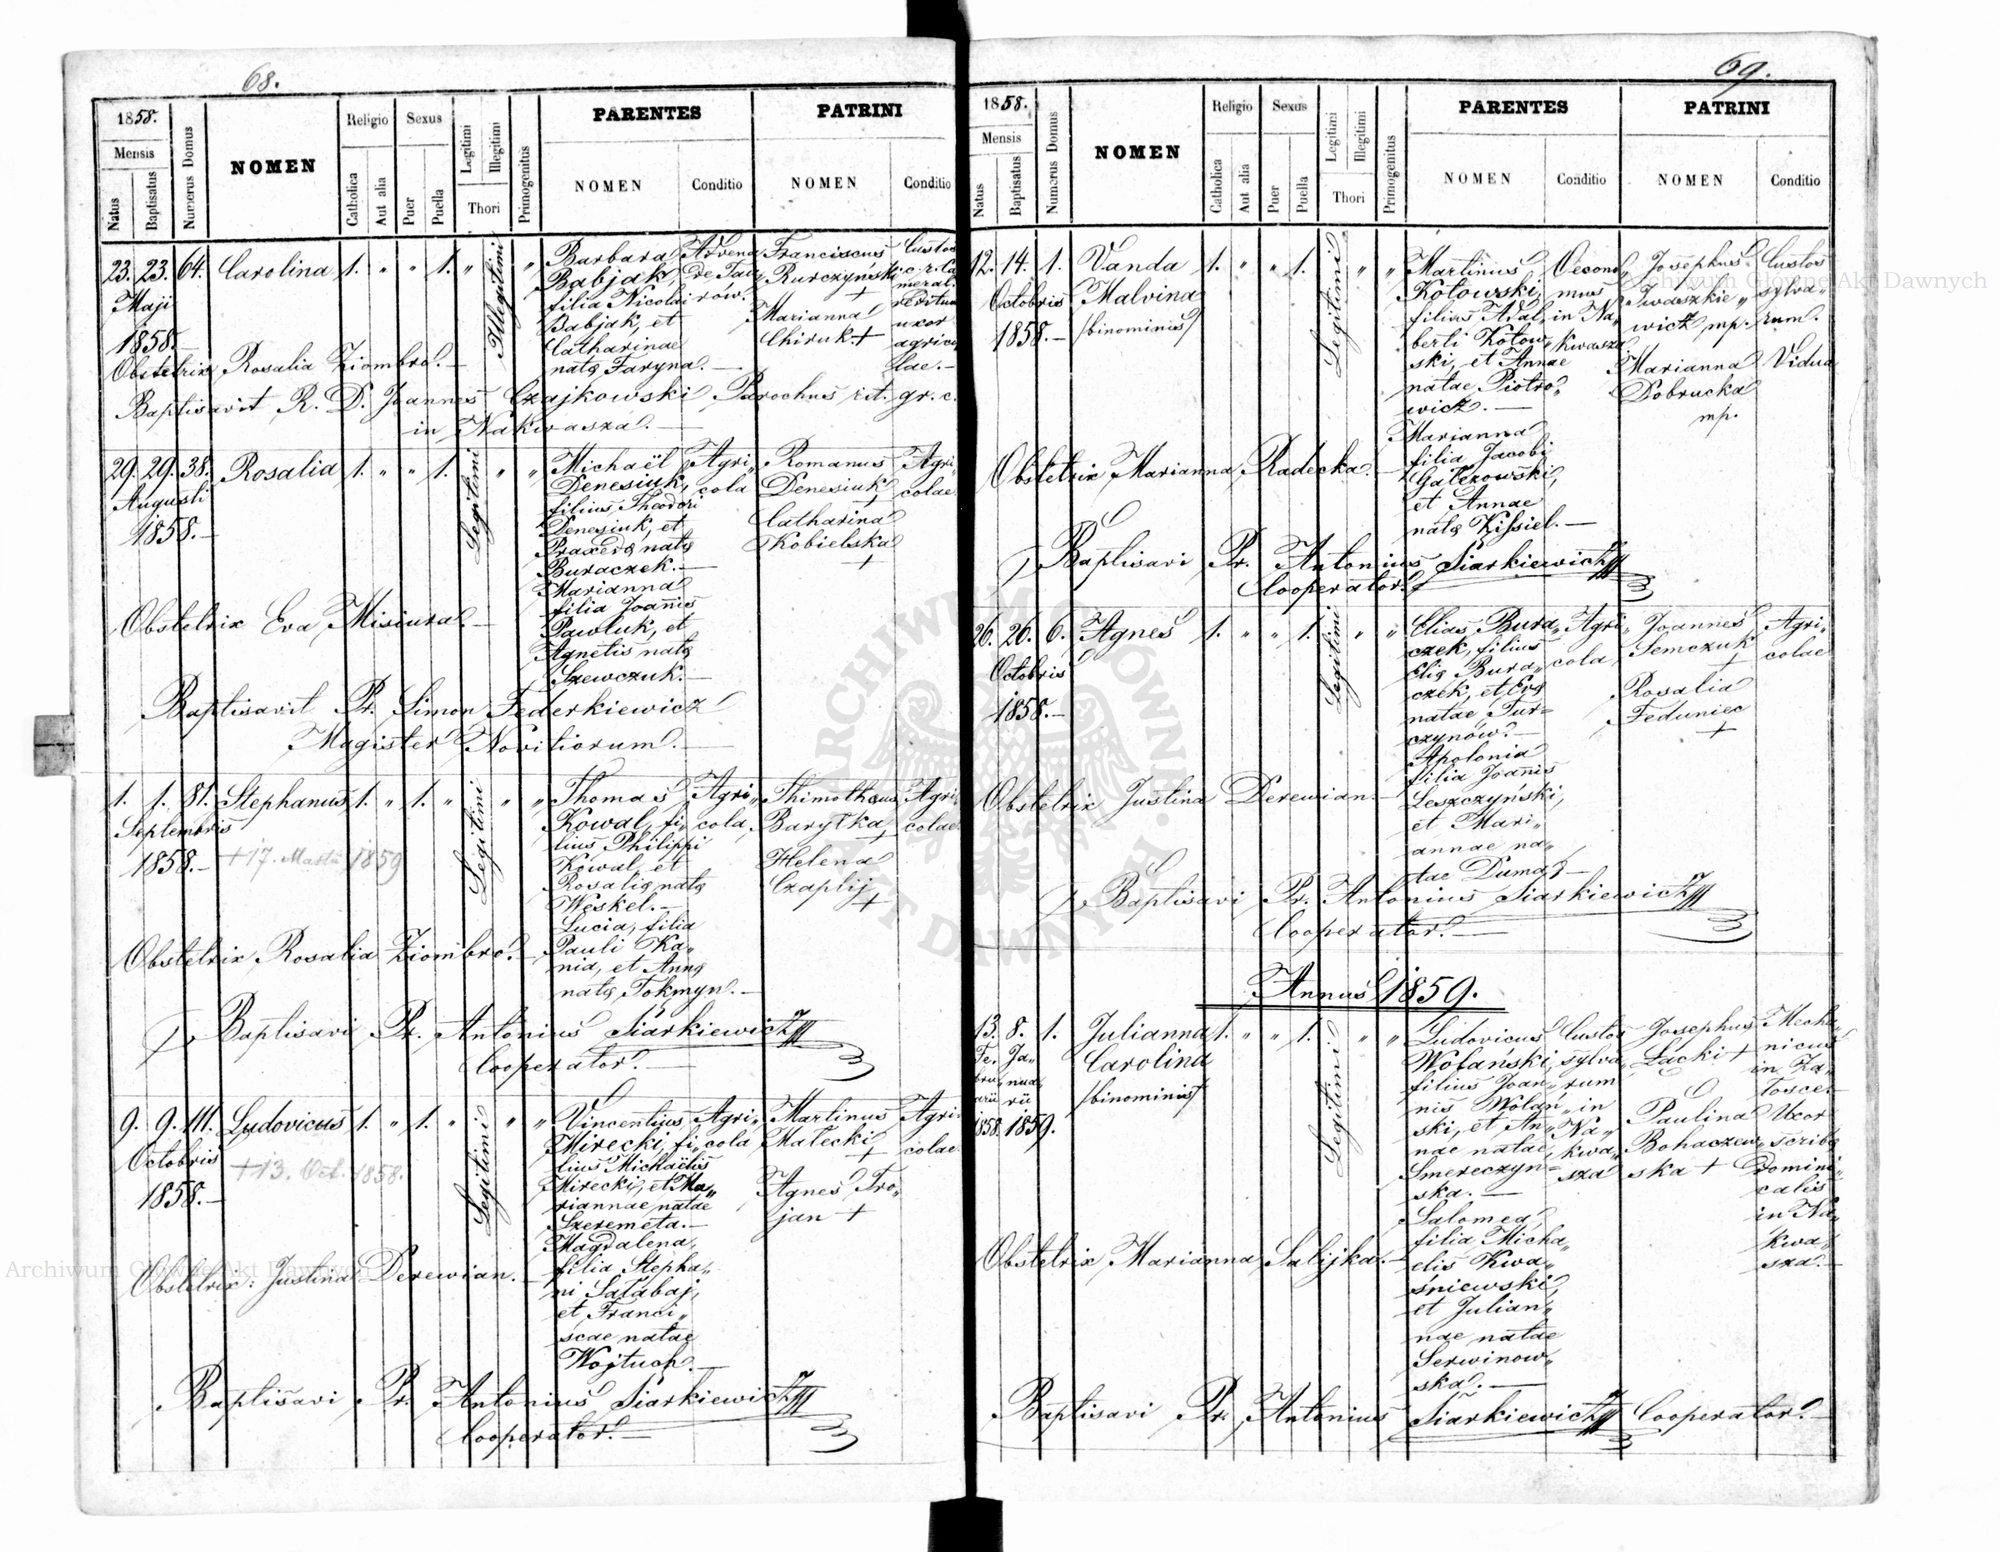 68.
1858.
Mensis
Natus
Baptisatus
Numerus Domus
NOMEN
Religio
Catholica
Aut alia
Sexus
Puer
Puella
Legitimi
Illegitimi
Thori
Primogenitus
PARENTES
NOMEN
Conditio
PATRINI
NOMEN
Conditio
23. 23. 64. Carolina 1. " " 1. "
Maji
1858.-
Illegitimi
"
Barbara
Babjak,
filia Nicolai
Babjak, et
Catharinae
natę Faryna.-
Advena
de Tau,
rów.
Franciscus
Kurczynski
+
Marianna
Chiruk +
Custos
c. r. Ca
meral.
redituu
uxor
agrico
lae.-
Obstetrix Rosalia Ziombro.-
Baptisavit R. D. Joannes Czajkowski Parochus rit. gr. c.
in Nakwasza.-
29. 29. 38. Rosalia 1. " " 1.
Augusti
1858.-
Legitimi
" "
Michaël
Denesiuk,
filius Theodori
Denesiuk, et
Praxedę natę
Buraczek.-
Marianna
filia Joannis
Pawluk, et
Agnetis natę
Szewczuk.-
Agri,,
cola
Romanus
Denesiuk
+
Catharina
Kobielska
+
Agri,,
colae
Obstetrix Eva Misiura.-
Baptisavit Pr. Simon Federkiewicz
Magister Novitiorum.-
1. 1. 81. Stephanus 1. " 1. "
Septembris
1858.- +17. Martii 1859
Legitimi
" "
Thomas
Kowal, fi,,
lius Philippi
Kowal, et
Rosalię natę
Weskel.-
Lucia, filia
Pauli Ka,,
nia, et Annę
natę Tokmyn.-
Agri,,
cola,
Thimotheus
Barytka
+
Helena
Czaplij
+
Agri
colae
Obstetrix Rosalia Ziombro.-
Baptisavi Pr. Antonius Siarkiewicz
Cooperator.-
9. 9. 111. Ludovicus 1. " 1. "
Octobris
1858.-
+13. Oct. 1858.
Legitimi
" "
Vincentius
Mirecki, fi,,
lius Michaëlis
Mirecki, et Ma,,
riannae natae
Szeremeta.-
Magdalena,
filia Stepha,,
ni Sałabaj,
et Franci,,
scae natae
Wojtuch.-
Agri,,
cola
Martinus
Małecki
+
Agnes Tro,,
jan +
Agri
colae
Obstetrix: Justina Derewian.-
Baptisavi Pr. Antonius Siarkiewicz
Cooperator.-
69.
1858.
Mensis
Natus
Baptisatus
Numerus Domus
NOMEN
Religio
Catholica
Aut alia
Sexus
Puer
Puella
Legitimi
Illegitimi
Thori
Primogenitus
PARENTES
NOMEN
Conditio
PATRINI
NOMEN
Conditio
12. 14. 1. Vanda 1. " " 1.
Octobris Malvina
1858.- /binominis/
Legitimi
" "
Martinus
Kotowski,
filius Adal,,
berti Kotow,,
ski, et Annae
natae Piotro,,
wicz.-
Marianna
filia Jacobi
Gałezowski,
et Annae
natę Kissiel.-
Oecono,,
mus
in Na,,
kwasza
Josephus
Iwaszkie,,
wicz mp.
Marianna
Dobrucka
mp.
Custos
sylva,,
rum.
Vidua
Obstetrix Marianna Radecka.
Baptisavi Pr. Antonius Siarkiewicz
Cooperator.
26. 26. 6. Agnes 1. " " 1.
Octobris
1858.-
Legitimi
" "
Elias Bura,,
czek, filius
Elię Bura,,
czek, et Evę
natae Tur=
czynów.-
Apolonia
filia Joannis
Leszczyński,
et Mari,,
annae na,,
tae Duma,-
Agri,,
cola,
Joannes
Semczuk
+
Rosalia
Feduniec
+
Agri,,
colae
Obstetrix Justina Derewian.-
Baptisavi Pr. Antonius Siarkiewicz
Cooperator.-
Annus 1859.
13. 8. 1. Julianna 1. " " 1.
Fe, Ja,, Carolina
bru, nua,
arii rii /binominis/
1858. 1859.
Legitimi
" "
Ludovicus
Wolański,
filius Joan,,
nis Wolań,,
ski, et An,,
nae natae
Smereczyn=
ska.-
Salomea,
filia Micha,,
elis Kwa,,
śniewski,
et Julian,,
nae natae
Serwinow,,
ska.-
Custos
sylva,,
rum
in
Na,,
kwa,,
sza
Josephus
Łacki +
Paulina
Bohaczew,,
ska +
Mecha,,
nicus
in Za,,
losce.-
Uxor
scribę
Domini,,
calis
in Na,,
kwa,,
sza.-
Obstetrix Marianna Salijka.-
Baptisavi Pr. Antonius Siarkiewicz Cooperator.-
Archiwum Główne Akt Dawnych
Archiwum Główne Akt Dawnych
ARCHIWUM GŁÓWNE AKT DAWNYCH